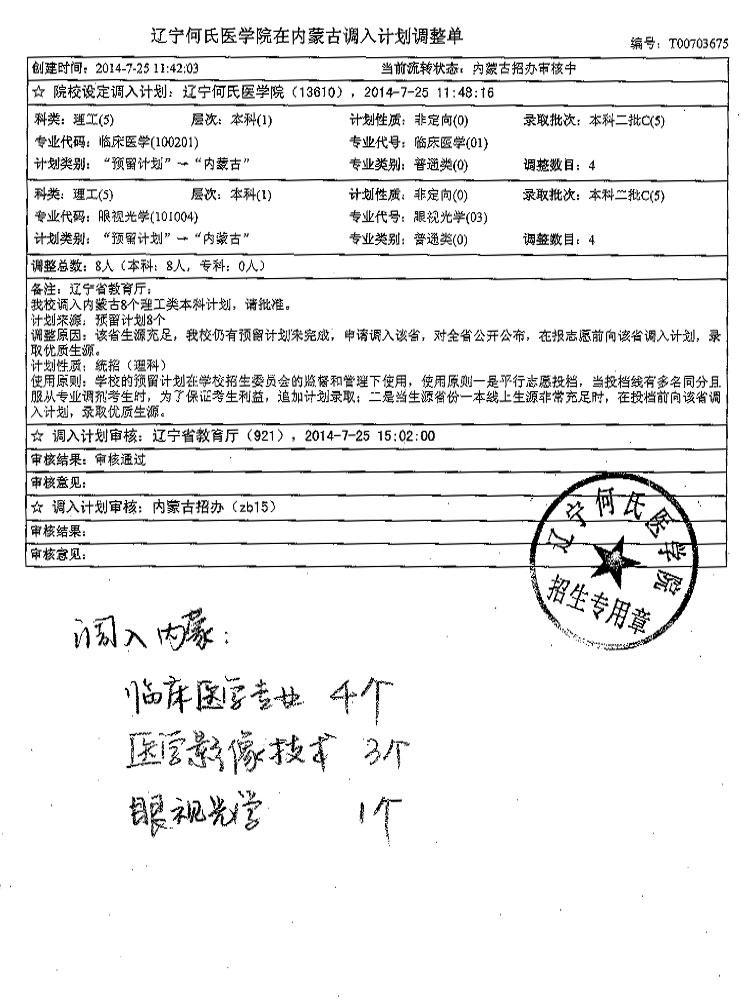 辽宁何氏医学院在内蒙古调入计划调整单
编号：T00703675
创建时间：2014-7-25 11:42:03 当前流转状态：内蒙古招办审核中
☆ 院校设定调入计划：辽宁何氏医学院（13610），2014-7-25 11:48:16
科类：理工(5) 层次：本科(1) 计划性质：非定向(0) 录取批次：本科二批C(5)
专业代码：临床医学(100201) 专业代号：临床医学(01)
计划类别：“预留计划”→“内蒙古” 专业类别：普通类(0) 调整数目：4
科类：理工(5) 层次：本科(1) 计划性质：非定向(0) 录取批次：本科二批C(5)
专业代码：眼视光学(101004) 专业代号：眼视光学(03)
计划类别：“预留计划”→“内蒙古” 专业类别：普通类(0) 调整数目：4
调整总数：8人（本科：8人，专科：0人）
备注：辽宁省教育厅：
我校调入内蒙古8个理工类本科计划，请批准。
计划来源：预留计划8个
调整原因：该省生源充足，我校仍有预留计划未完成，申请调入该省，对全省公开公布，在报志愿前向该省调入计划，录
取优质生源。
计划性质：统招（理科）
使用原则：学校的预留计划在学校招生委员会的监督和管理下使用，使用原则一是平行志愿投档，当投档线有多名同分且
服从专业调剂考生时，为了保证考生利益，追加计划录取；二是当生源省份一本线上生源非常充足时，在投档前向该省调
入计划，录取优质生源。
☆ 调入计划审核：辽宁省教育厅（921），2014-7-25 15:02:00
审核结果：审核通过
审核意见：
☆ 调入计划审核：内蒙古招办（zb15）
审核结果：
审核意见：
辽宁何氏医学院
招生专用章
调入内蒙：
临床医学专业 4个
医学影像技术 3个
眼视光学 1个